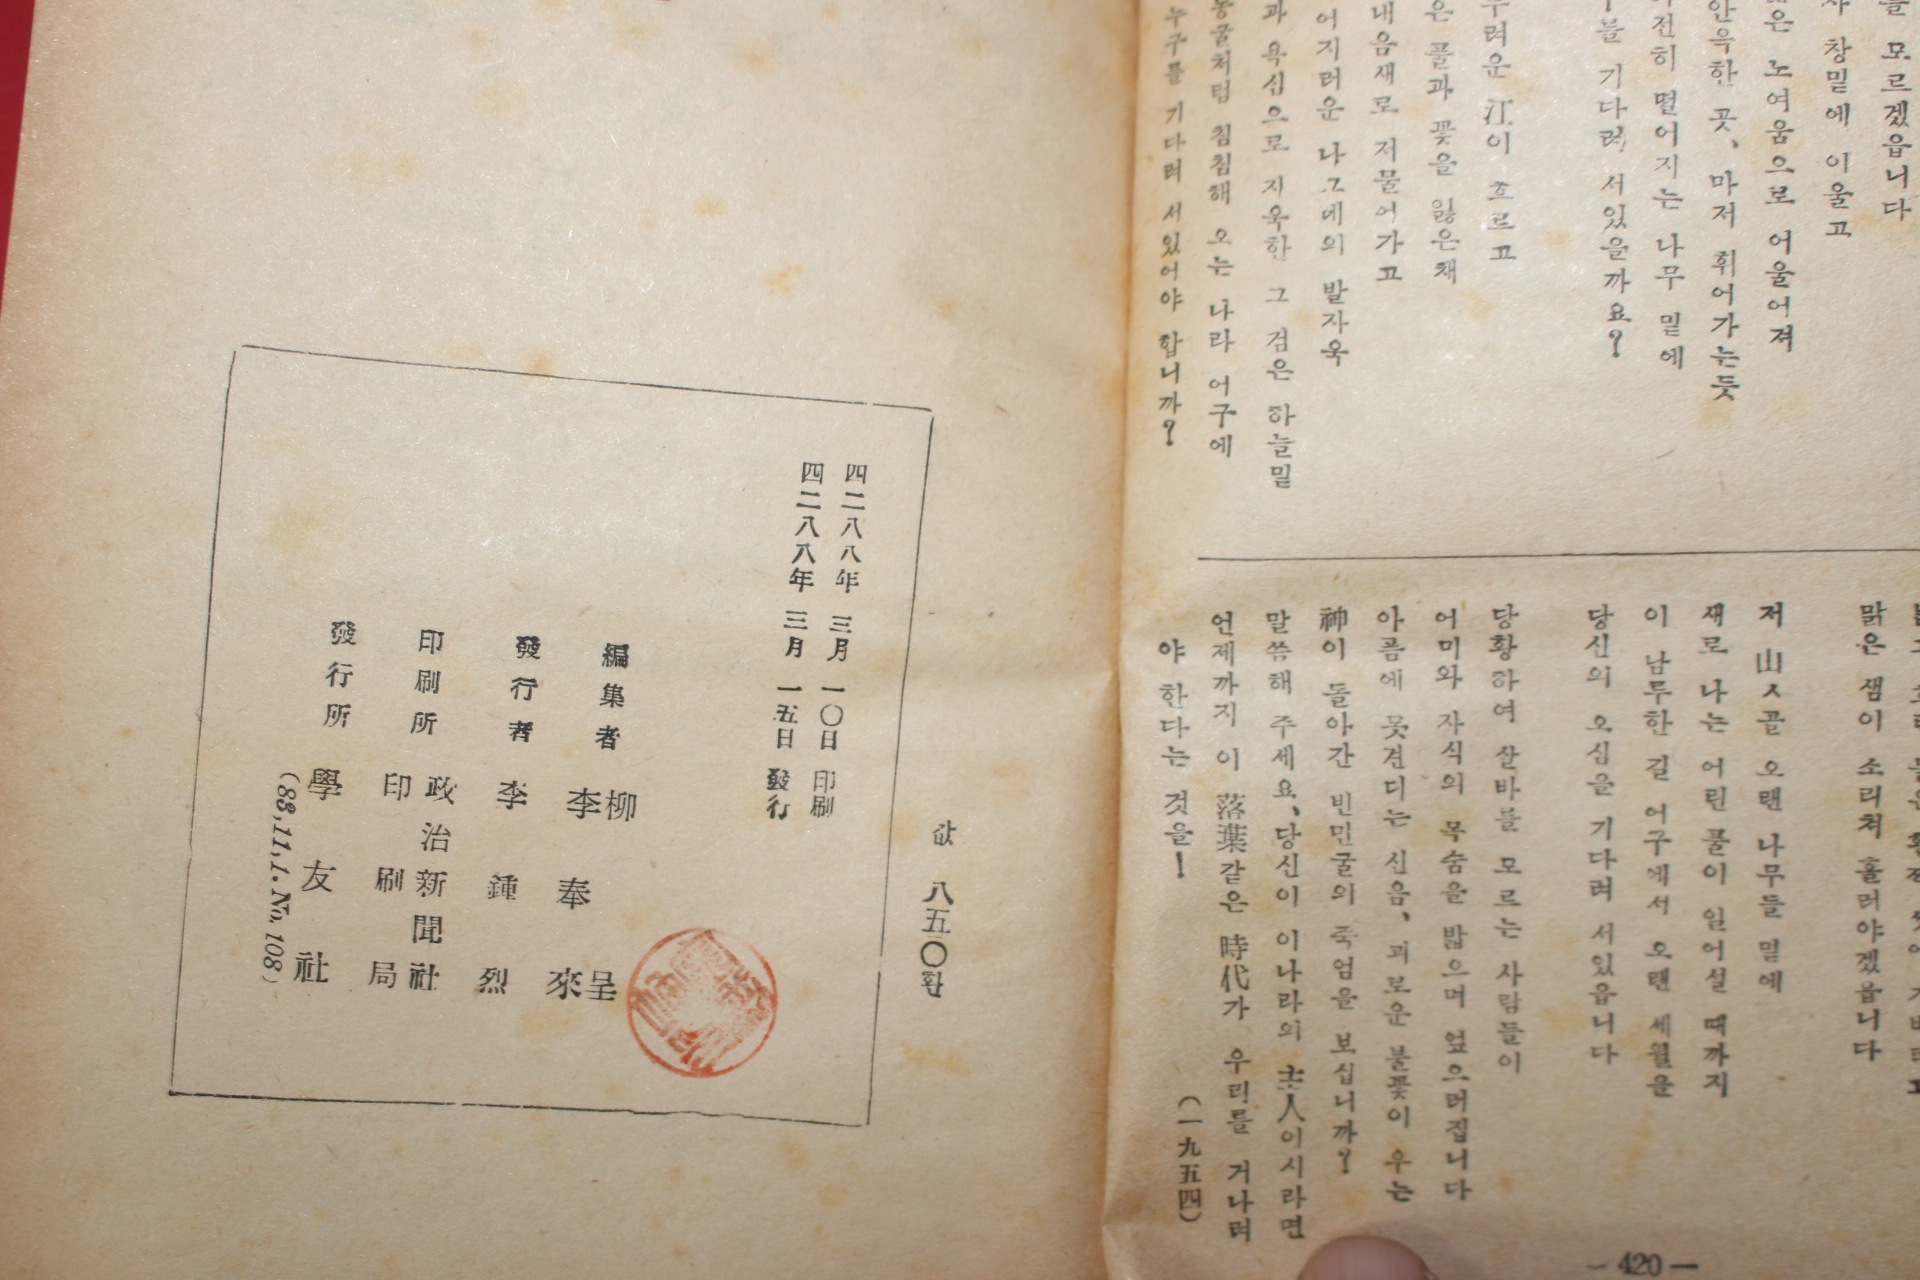 를 모르겠읍니다
창밑에 이울고
은 노여움으로 어울어져
안윽한 곳、마저 휘어가는듯
전히 떨어지는 나무 밑에
를 기다려 서있을까요?
부려운 江이 흐르고
은 풀과 꽃을 잃은채
내음새로 저물어가고
어지러운 나그네의 발자욱
과 욕심으로 지욱한 그 검은 하늘밑
동굴처럼 침침해 오는 나라 어구에
누구를 기다려 서있어야 합니까?
맑은 샘이 소리쳐 흘러야겠읍니다
저 山ㅅ골 오랜 나무들 밑에
새로 나는 어린 풀이 일어설 때까지
이 남루한 길 어구에서 오랜 세월을
당신의 오심을 기다려 서있읍니다
당황하여 살바를 모르는 사람들이
어미와 자식의 목숨을 밟으며 엎으러집니다
아픔에 못견디는 신음、괴로운 불꽃이 우는
神이 돌아간 빈민굴의 죽엄을 보십니까?
말씀해 주세요、당신이 이나라의 主人이시라면
언제까지 이 落葉같은 時代가 우리를 거나려
야 한다는 것을!
(一九五四)
— 420 —
값 八五〇환
四二八八年 三月 一〇日 印刷
四二八八年 三月 一五日 發行
編集者 柳呈
李奉來
發行者 李鍾烈
印刷所 政治新聞社
印刷局
發行所 學友社
(83,11,1. No. 108)